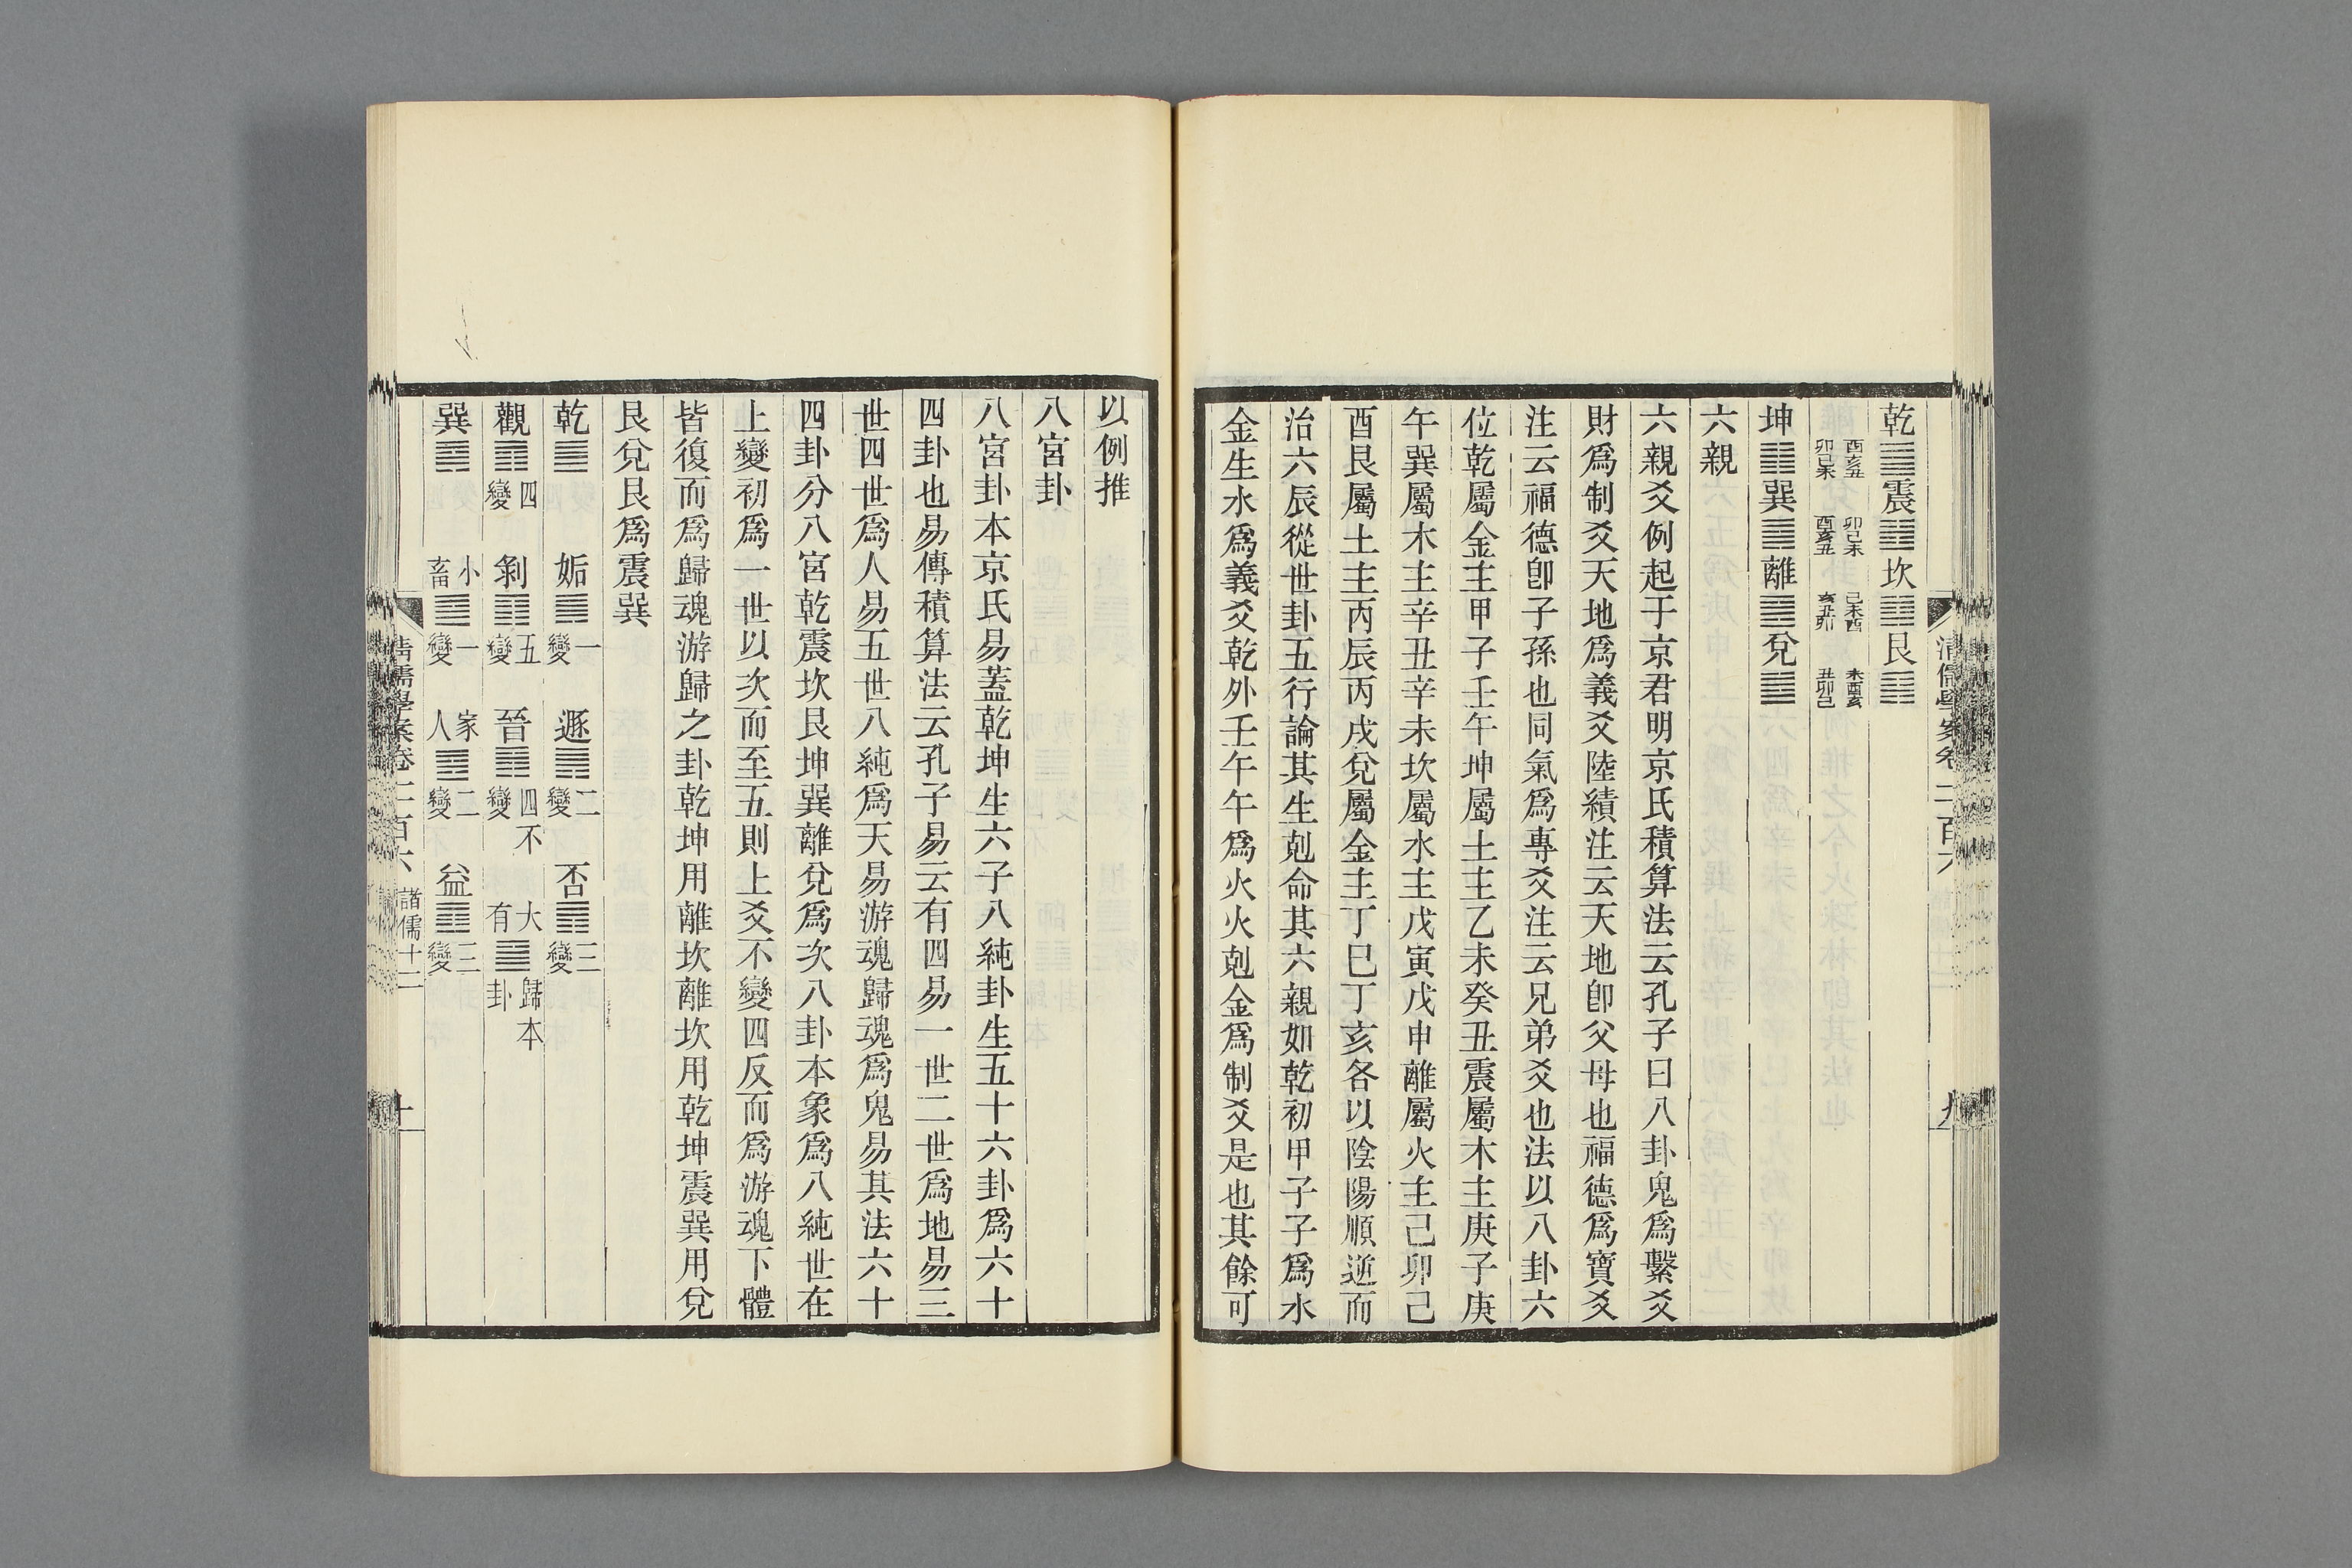 乾䷀震䷲坎䷜艮䷳
酉亥丑 卯巳未 巳未酉 未酉亥
卯巳未 酉亥丑 亥丑卯 丑卯巳
坤䷁巽䷸離䷝兌䷹
六親
六親爻例起于京君明京氏積算法云孔子曰八卦鬼爲繫爻
財爲制爻天地爲義爻陸績注云天地卽父母也福德爲寶爻
注云福德卽子孫也同氣爲專爻注云兄弟爻也法以八卦六
位乾屬金主甲子壬午坤屬土主乙未癸丑震屬木主庚子庚
午巽屬木主辛丑辛未坎屬水主戊寅戊申離屬火主己卯己
酉艮屬土主丙辰丙戌兌屬金主丁巳丁亥各以陰陽順逆而
治六辰從世卦五行論其生剋命其六親如乾初甲子子爲水
金生水爲義爻乾外壬午午爲火火剋金爲制爻是也其餘可
以例推
八宮卦
八宮卦本京氏易蓋乾坤生六子八純卦生五十六卦爲六十
四卦也易傳積算法云孔子易云有四易一世二世爲地易三
世四世爲人易五世八純爲天易游魂歸魂爲鬼易其法六十
四卦分八宮乾震坎艮坤巽離兌爲次八卦本象爲八純世在
上變初爲一世以次而至五則上爻不變四反而爲游魂下體
皆復而爲歸魂游歸之卦乾坤用離坎離坎用乾坤震巽用兌
艮兌艮爲震巽
乾䷀ 姤䷫一變 遯䷠二變 否䷋三變
觀䷓四變 剝䷖五變 晉䷢四不變 大有䷍歸本卦
巽䷸ 小畜䷈一變 家人䷤二變 益䷩三變
清儒學案卷二百六 諸儒十二
十